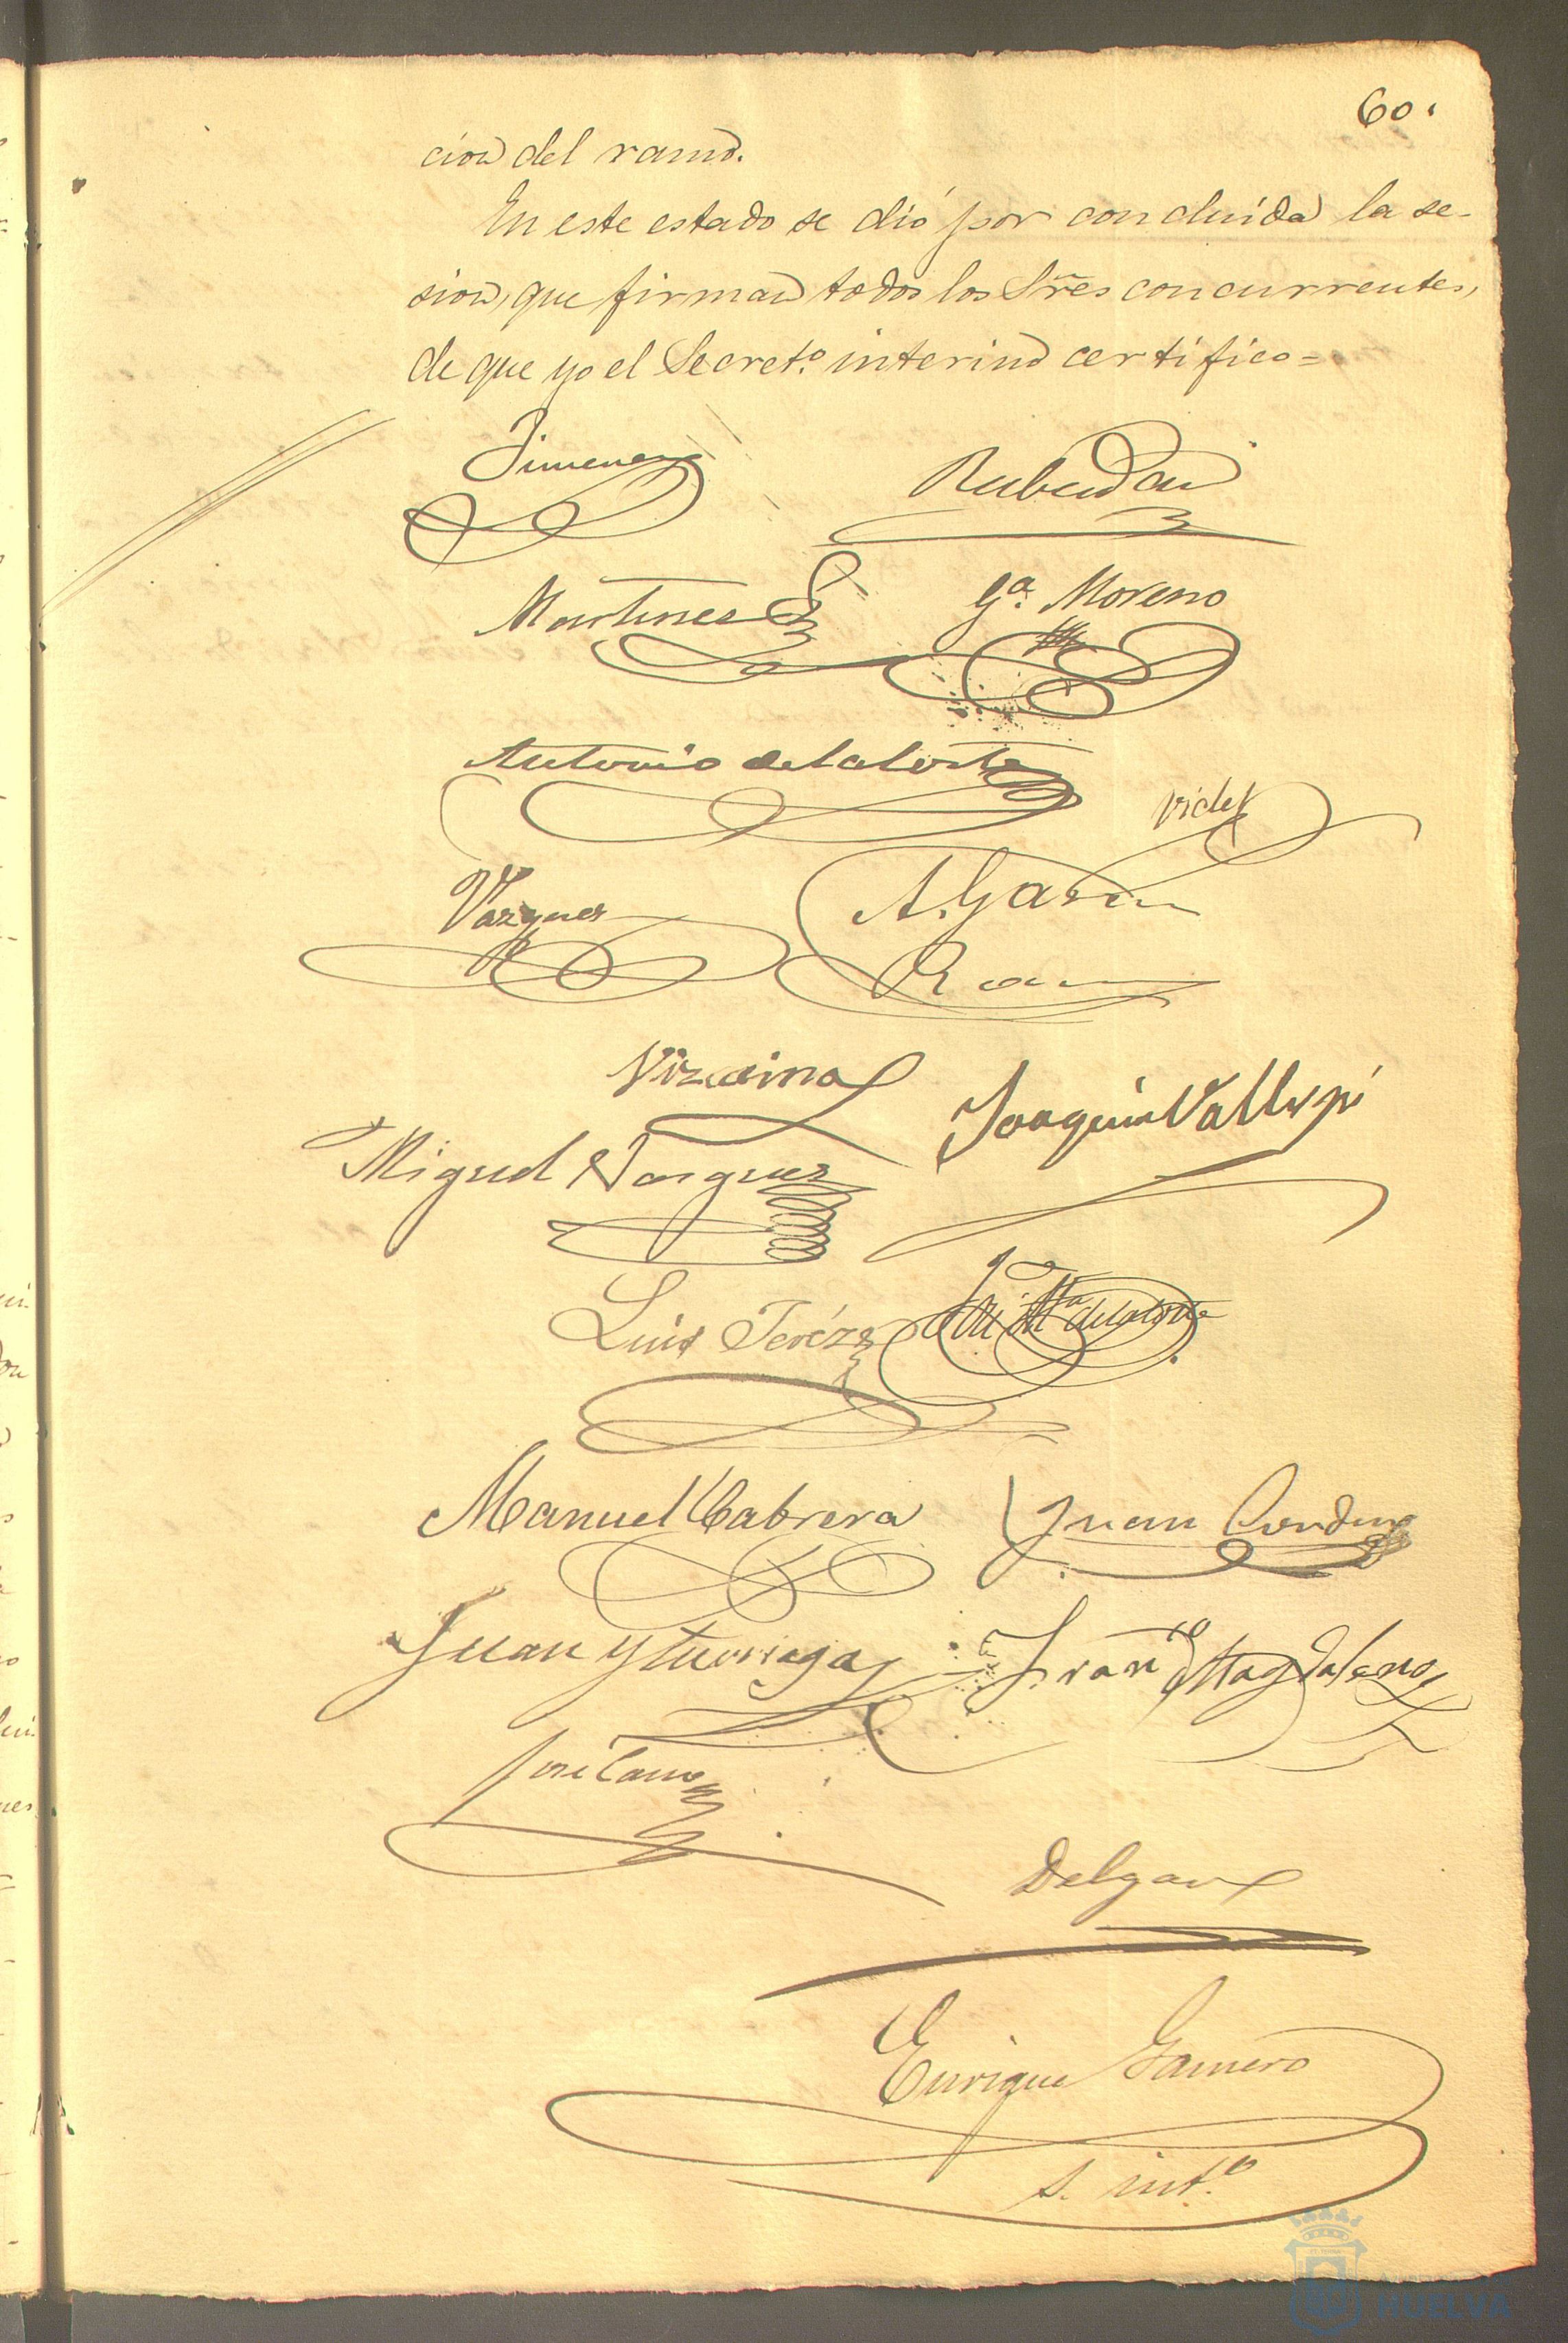 60.
cion del ramo.
En este estado se dió por concluida la se-
sion, que firman todos los Sres concurrentes,
de que yo el Secret.º interino certifico=
Jimenez
Martinez
Gª. Moreno
Antonio de la Corte
Vides
Vazquez
A. Garcia
Vizcaino
Joaquin Vallespi
Miguel Vazquez
Luis Peréz
Mª de la Corte
Manuel Cabrera
Juan
Juan Yturriaga
Franco Magdaleno
José
Delgado
Enrique Gamero
S. int.º
HUELVA